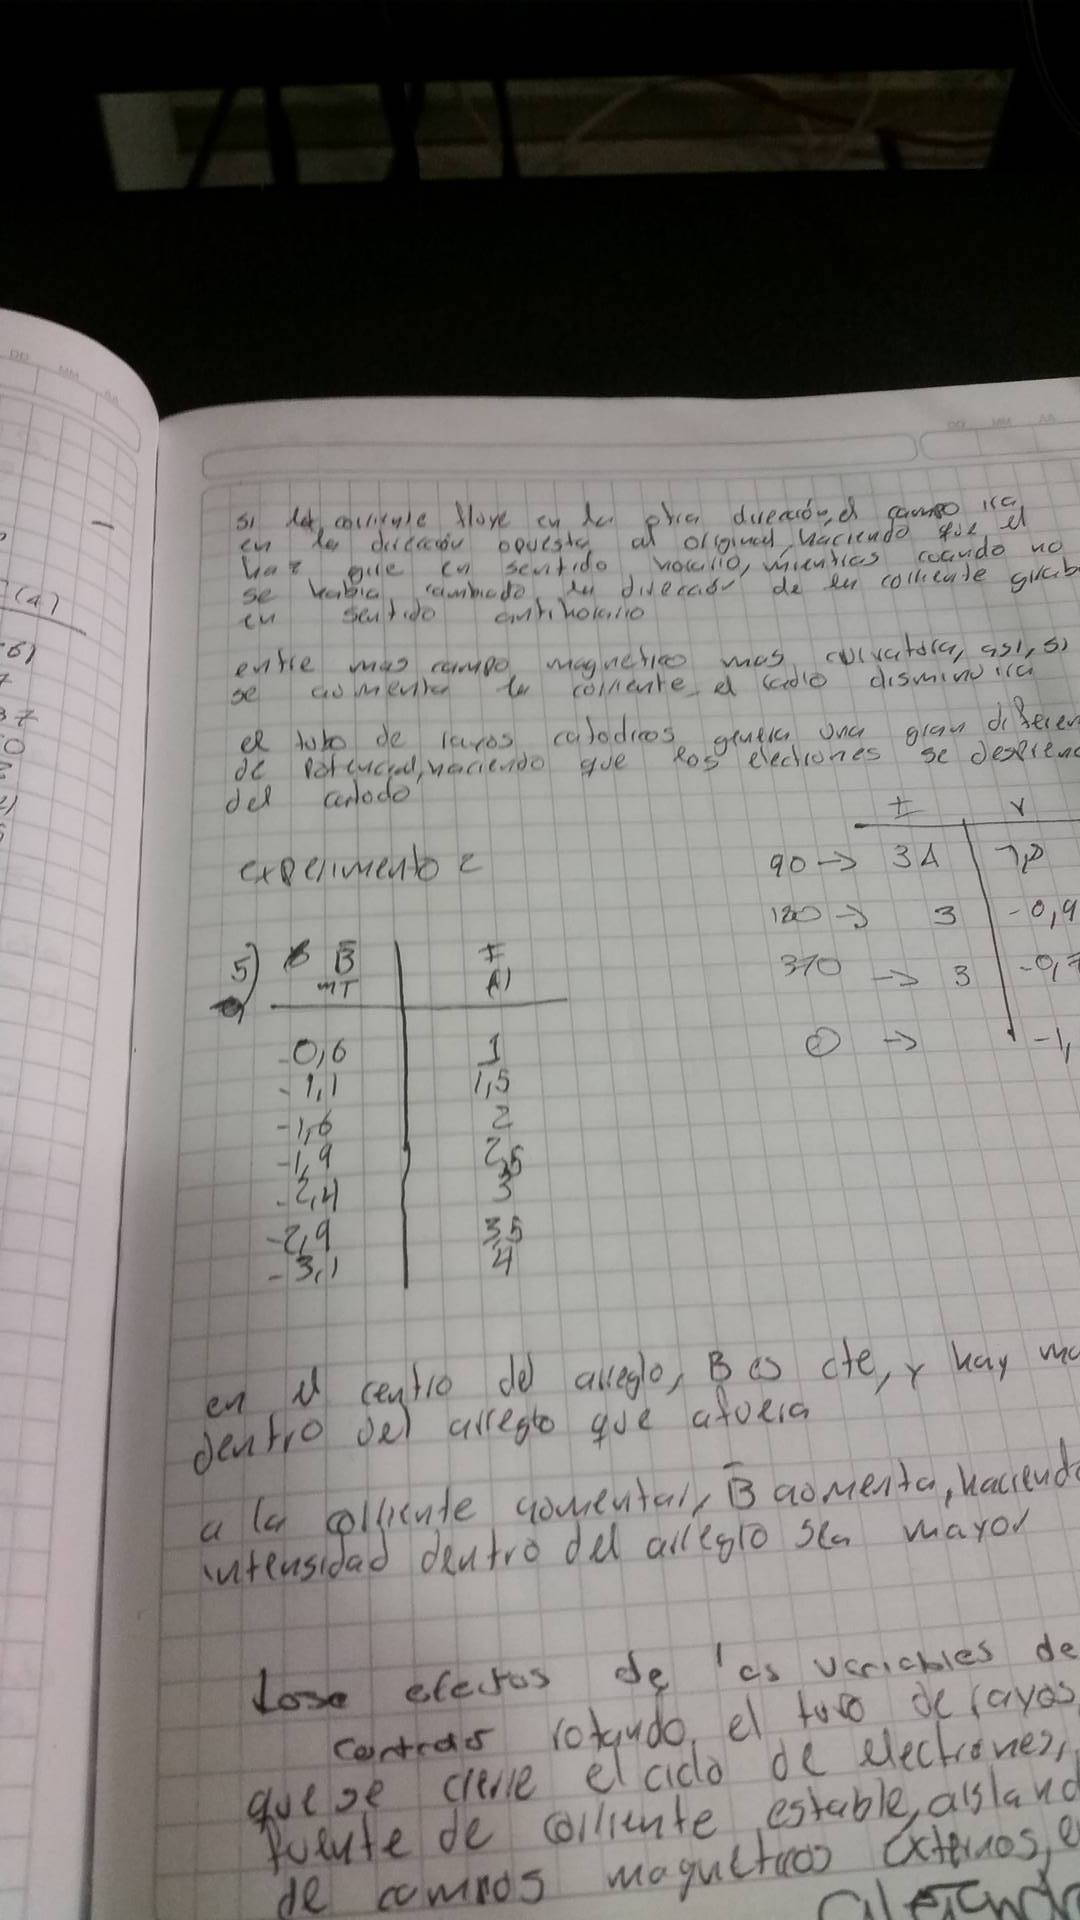 DD MM AA
DD MM AA
(a)
si la corriente fluye en la otra dirección, el campo ira
en la dirección opuesta al original, haciendo que el
haz gire en sentido horario, mientras cuando no
se habia cambiado la dirección de la corriente giraba
en sentido antihorario
entre mas campo magnetico mas curvatura, asi, si
se aumenta la corriente el radio disminuira
el tubo de rayos catodicos genera una gran diferen
de potencial, haciendo que los electrones se desprend
del catodo
experimento 2
I V
90 → 3A 1,2
180 → 3 -0,9
370 → 3 -0,7
0 → -1,
5) B I
mT A)
-0,6 1
-1,1 1,5
-1,6 2
-1,9 2,5
-2,4 3
-2,9 3,5
-3,1 4
en el centro del arreglo, B es cte, y hay ma
dentro del arreglo que afuera
a la corriente aumentar, B aumenta, haciendo
intensidad dentro del arreglo sea mayor
efectos de las variables de
rotando el tubo de rayos
que se cierre el ciclo de electrones,
fuente de corriente estable, aisland
de campos magneticos externos, e